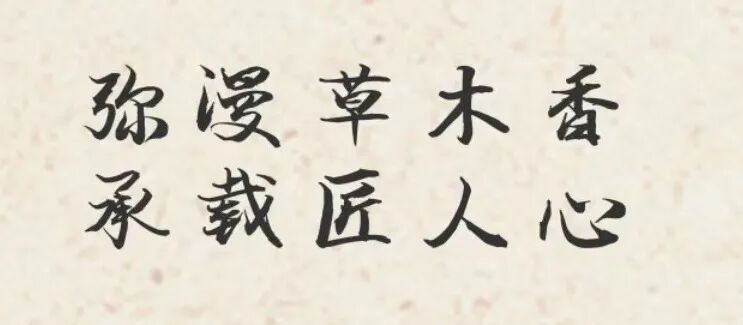 弥漫草木香
承载匠人心